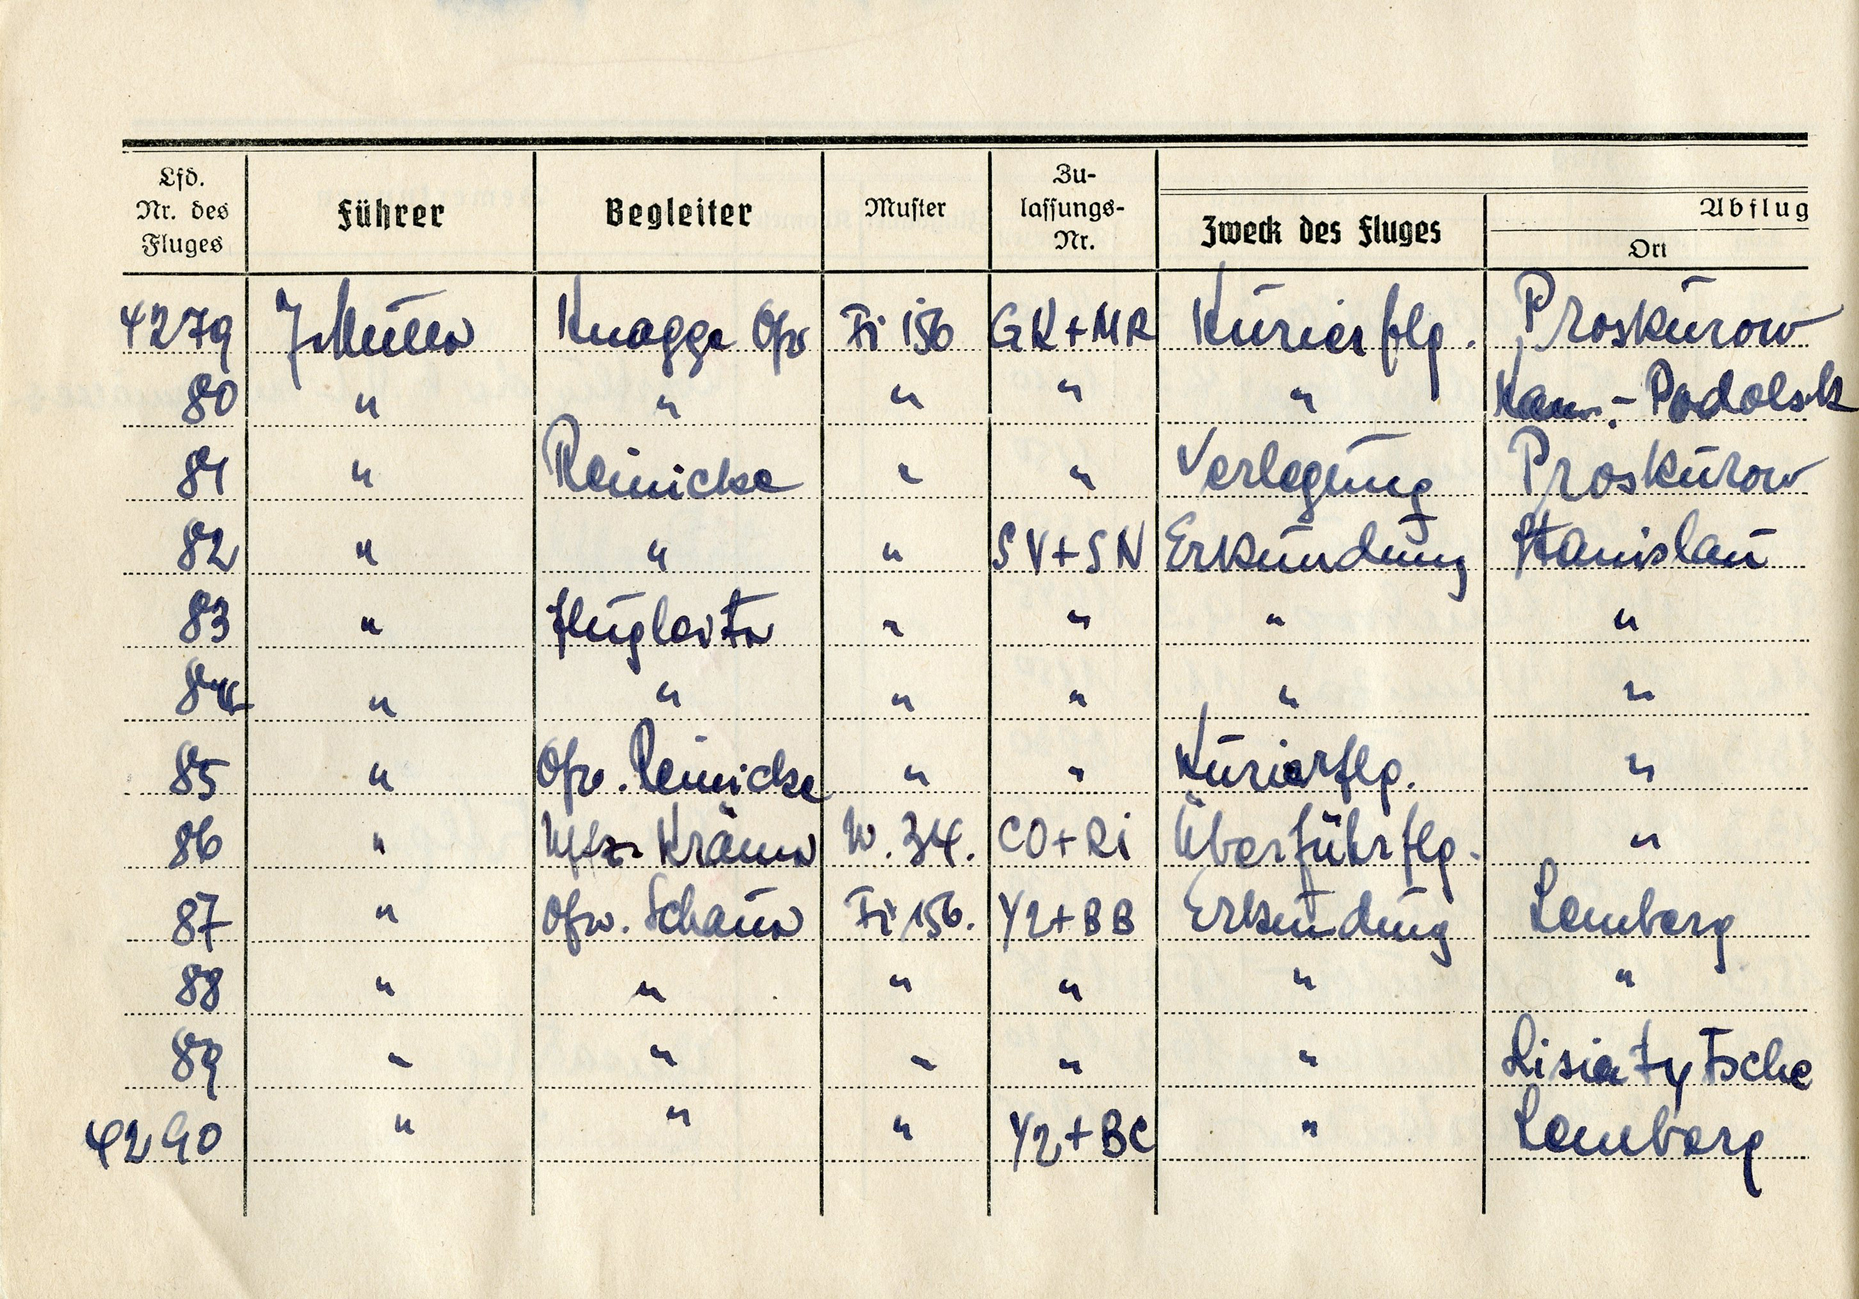 Lfd. Nr. des Fluges Führer Begleiter Muster Zulassungs-Nr. Zweck des Fluges Abflug Ort
4279 J. Müller Knagge Ofw Fi 156 GK+MR Kurierflg. Proskurow
80 " " " " " Kam.-Podolsk
81 " Reinicke " " Verlegung Proskurow
82 " " " SV+SN Erkundung Stanislau
83 " " " " "
84 " " " " " "
85 " Ofw. Reinicke " " Kurierflg. "
86 " Uffz. Krämer W. 34. CO+Ri Überführflg. "
87 " Ofw. Schauer Fi 156. Y2+BB Erkundung Lemberg
88 " " " " " "
89 " " " " "
4290 " " " Y2+BC " Lemberg